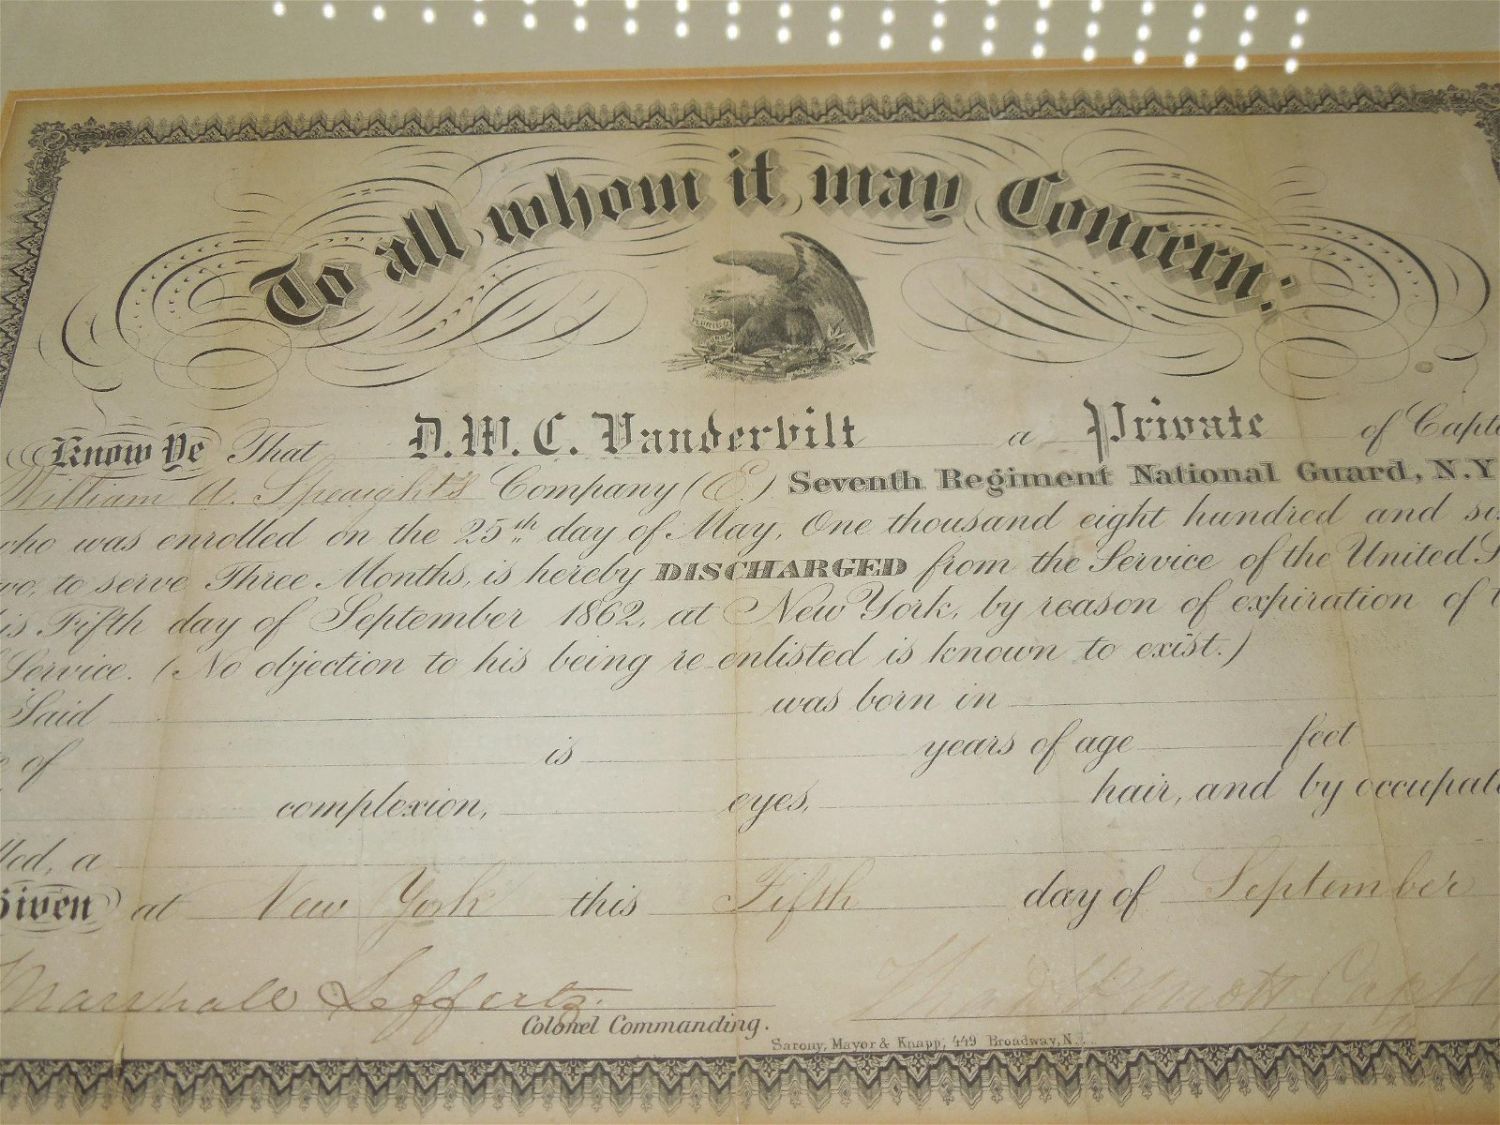 To all whom it may Concern:
Know Ye That D.W.C. Vanderbilt a Private of Capt
William A. Speaight's Company (E.) Seventh Regiment National Guard, N.Y
who was enrolled on the 25th day of May, One thousand eight hundred and si
wo, to serve Three Months, is hereby DISCHARGED from the Service of the United S
is Fifth day of September 1862, at New York, by reason of expiration of t
Service. (No objection to his being re enlisted is known to exist.)
Said was born in
of is years of age feet
complexion, eyes, hair, and by occupati
lled, a
Given at New York this Fifth day of September
Marshall Lefferts Capt
Colonel Commanding.
Sarony, Mayor & Knapp, 449 Broadway, N.Y.